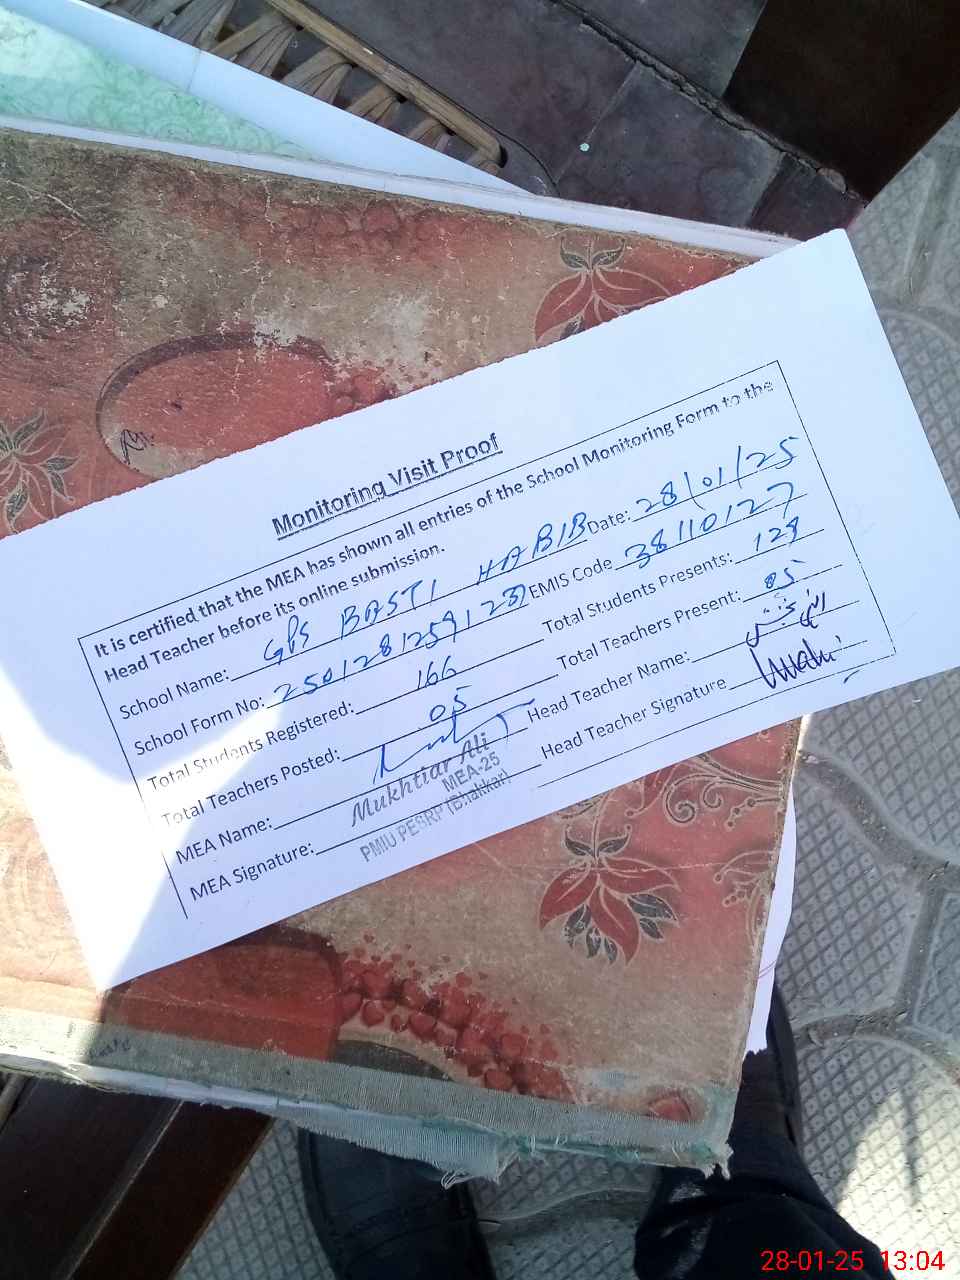 Monitoring Visit Proof
It is certified that the MEA has shown all entries of the School Monitoring Form to the
Head Teacher before its online submission.
School Name: GPS BASTI HABIB Date: 28/01/25
School Form No: EMIS Code 38110127
Total Students Registered: 166 Total Students Presents:
Total Teachers Posted: 05 Total Teachers Present: 05
MEA Name: Head Teacher Name:
MEA Signature: Head Teacher Signature
Mukhtiar Ali
MEA-25
PMIU PESRP (Bhakkar)
28-01-25 13:04